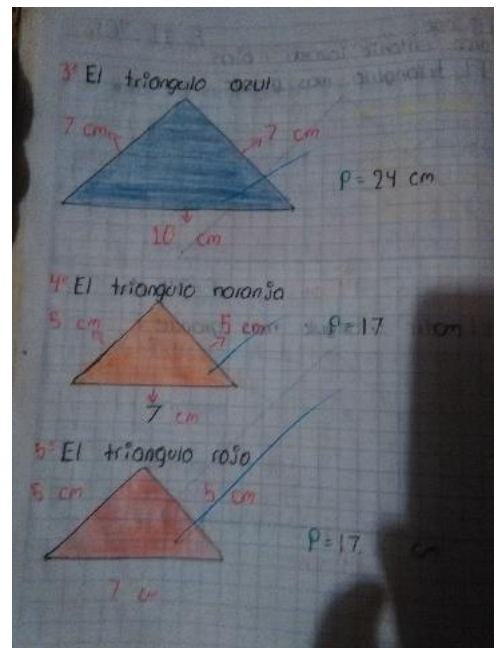 3° El triangulo azul
7 cm 7 cm
P = 24 cm
10 cm
4° El triangulo naranja
5 cm 5 cm P = 17 cm
7 cm
5° El triangulo rojo
5 cm 5 cm
P = 17 cm
7 cm